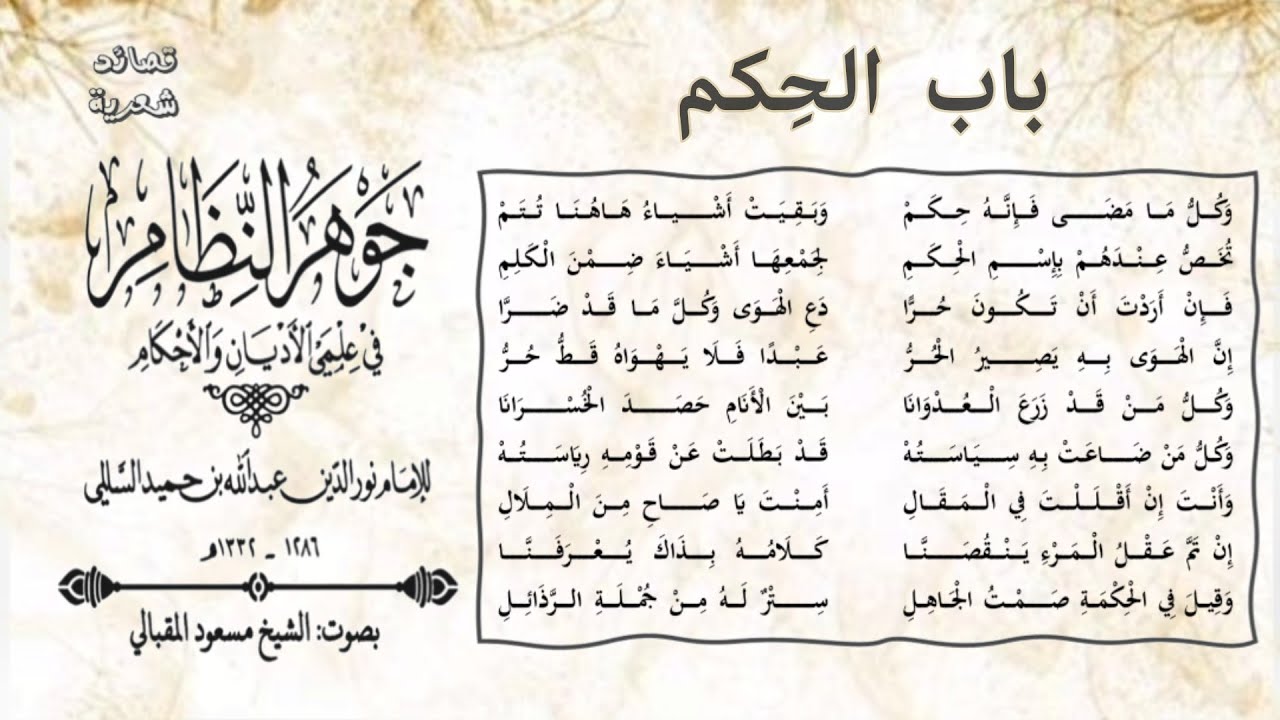 باب الحِكم
قصائد
شعرية
جَوْهَرُ النِّظَامِ
فِي عِلْمَيِ الأَدْيَانِ وَالأَحْكَامِ
للإمام نور الدين عبدالله بن حميد السَّالمي
١٢٨٦ - ١٣٣٢هـ
بصوت: الشيخ مسعود المقبالي
وَكُلُّ مَا مَضَى فَإِنَّهُ حِكَمْ وَبَقِيَتْ أَشْيَاءُ هَاهُنَا تُتَمْ
تُخَصُّ عِنْدَهُمْ بِإِسْمِ الْحِكَمِ لِجَمْعِهَا أَشْيَاءَ ضِمْنَ الْكَلِمِ
فَإِنْ أَرَدْتَ أَنْ تَكُونَ حُرًّا دَعِ الْهَوَى وَكُلَّ مَا قَدْ ضَرَّا
إِنَّ الْهَوَى بِهِ يَصِيرُ الْحُرُّ عَبْدًا فَلَا يَهْوَاهُ قَطُّ حُرُّ
وَكُلُّ مَنْ قَدْ زَرَعَ الْعُدْوَانَا بَيْنَ الْأَنَامِ حَصَدَ الْخُسْرَانَا
وَكُلُّ مَنْ ضَاعَتْ بِهِ سِيَاسَتُهْ قَدْ بَطَلَتْ عَنْ قَوْمِهِ رِيَاسَتُهْ
وَأَنْتَ إِنْ أَقْلَلْتَ فِي الْمَقَالِ أَمِنْتَ يَا صَاحِ مِنَ الْمِلَالِ
إِنْ تَمَّ عَقْلُ الْمَرْءِ يَنْقُصَنَّا كَلَامُهُ بِذَاكَ يُعْرَفَنَّا
وَقِيلَ فِي الْحِكْمَةِ صَمْتُ الْجَاهِلِ سِتْرٌ لَهُ مِنْ جُمْلَةِ الرَّذَائِلِ